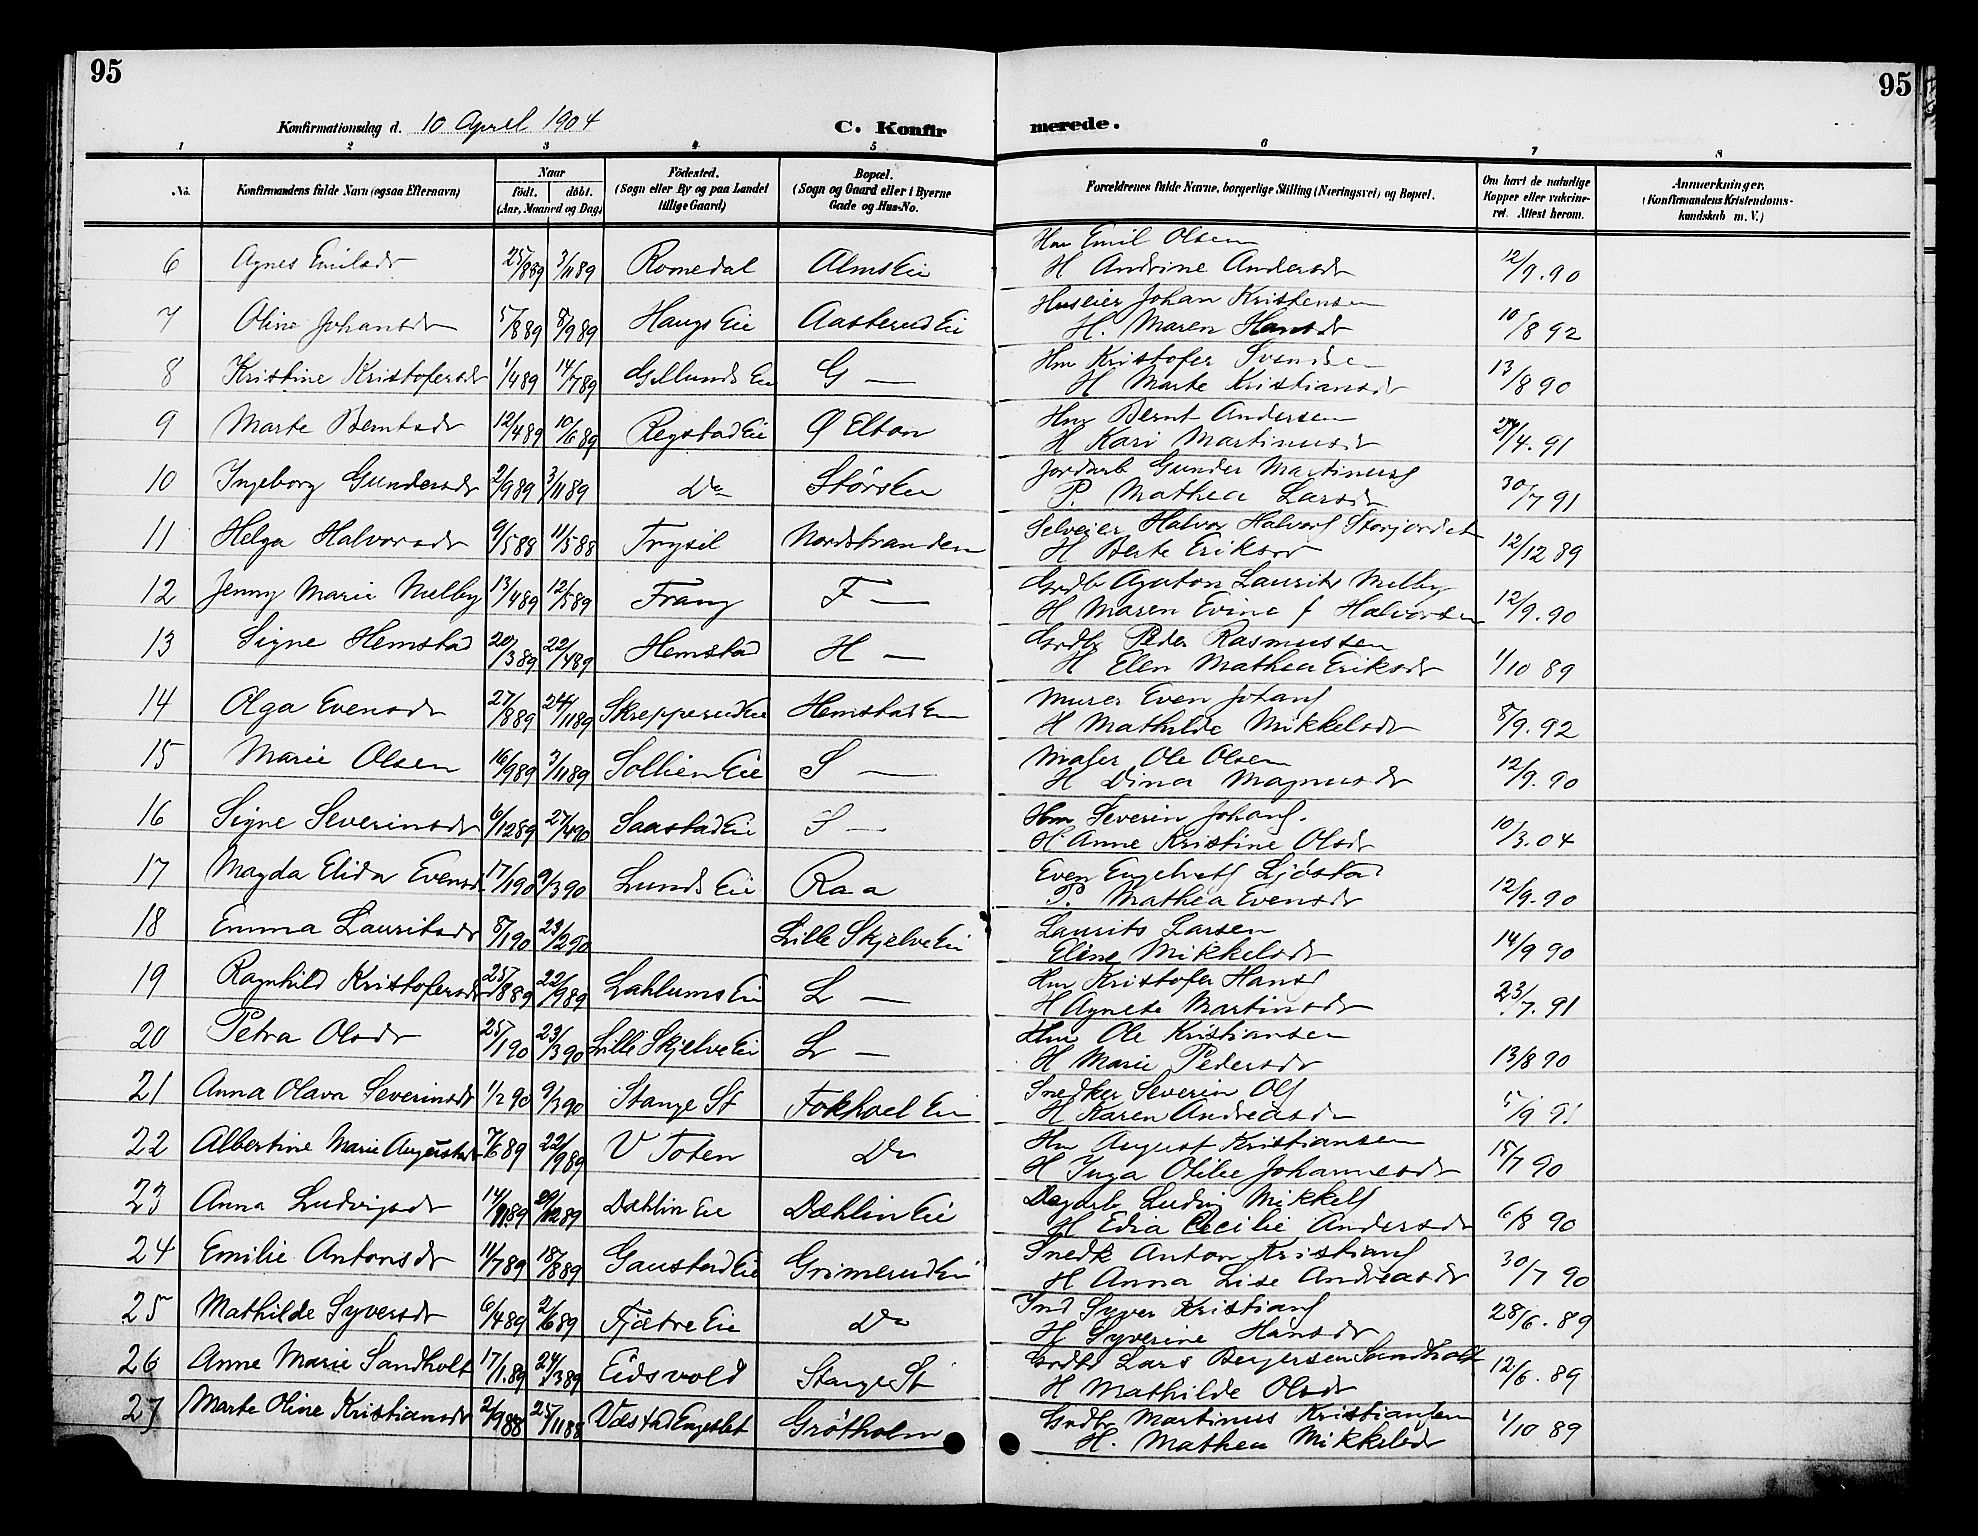 95
95
Konfirmationsdag d. 10 April 1904 C. Konfirmerede.
1 2 3 4 5 6 7 8
No. Konfirmandens fulde Navn (ogsaa Efternavn) Naar født. døbt. (Aar, Maaned og Dag) Fødested. (Sogn eller By og paa Landet tillige Gaard) Bopæl. (Sogn og Gaard eller i Byerne Gade og Hus-No. Forældrenes fulde Navne, borgerlige Stilling (Næringsvei) og Bopæl. Om havt de naturlige Kopper eller vakcineret. Attest herom. Anmærkninger. (Konfirmandens Kristendomskundskab m. V.)
6 Agnes Emilsdr 25/8 89 3/11 89 Romedal Alms Eie Hm Emil Olsen
H Andrine Andersdr 12/9.90
7 Oline Johansdr 5/8 89 8/9 89 Haugs Eie Aasterud Eie Huseier Johan Kristensen
H. Maren Hansdr 10/8 92
8 Kristine Kristofersdr 1/4 89 14/7 89 Gillunds Eie G — Hm Kristofer Svendsen
H Marte Kristiansdr 13/8 90
9 Marte Berntsdr 12/4 89 10/6 89 Regstad Eie Ø Elton Hm Bernt Andersen
H Kari Martinusdr 27/4.91
10 Ingeborg Gundersdr 2/9 89 3/11 89 Do Størs Eie Jordarb Gunder Martinus
P. Mathea Larsdr 30/7 91
11 Helga Halvorsdr 9/5 88 11/5 88 Trysil Nordstranden Selveier Halvor Halvors Storjordet
H Berte Eriksdr 12/12 89
12 Jenny Marie Melby 13/4 89 12/5 89 Frang F — Grdbr Agaton Laurits Melby
H Maren Evine f Halvorsen 12/9.90
13 Signe Hemstad 20/3 89 22/4 89 Hemstad H — Grdbr Peder Rasmussen
H Elen Mathea Eriksdr 1/10 89
14 Olga Evensdr 27/8 89 24/11 89 Skrepperud Eie Hemstad Eie Murer Even Johans
H Mathilde Mikkelsdr 8/9.92
15 Marie Olsen 16/9 89 3/11 89 Sollien Eie S — Maler Ole Olsen
H Dina Magnusdr 12/9.90
16 Signe Severinsdr 6/12 89 27/4 90 Saastad Eie S — Hm Severin Johans.
H Anne Kristine Olsdr 10/3.04
17 Magda Elida Evensd 17/1 90 9/3 90 Lunds Eie Raa Even Engebrets Ljøstad
P. Mathea Evensdr 12/9.90
18 Emma Lauritsdr 8/1 90 23/2 90 Lille Skjelve Eie Laurits Larsen
Eline Mikkelsdr 14/9 90
19 Ragnhild Kristofersdr 25/8 89 22/9 89 Lahlums Eie L — Hm Kristofer Hans
H Agnete Martinsdr 23/7.91
20 Petra Olsdr 25/1 90 23/3 90 Lille Skjelve Eie L — Hm Ole Kristiansen
H Marie Pedersdr 13/8 90
21 Anna Olava Severinsdr 1/2 90 9/3 90 Stange St Fokhol Eie Snedker Severin Ols
H Karen Andreasdr 5/9 91
22 Albertine Marie Augustsdr 7/6 89 22/9 89 V Toten Do Hm August Kristiansen
H Inga Otilie Johannesdr 15/7 90
23 Anna Ludvigsdr 14/11.89 29/12 89 Dæhlin Eie Dæhlin Eie Dagarb Ludvig Mikkels
H Edia Cecilie Andersdr 6/8 90
24 Emilie Antonsdr 11/7 89 18/8 89 Gaustad Eie Grimerud Eie Snedk Anton Kristians
H Anna Lise Andreasdr 30/7 90
25 Mathilde Syversdr 6/4 89 2/6 89 Fjetre Eie Do Ind Syver Kristians
H Syverine Hansdr 28/6.89
26 Anne Marie Sandholt 17/1.89 24/3 89 Eidsvold Stange St Grdbr Lars Bergersen Sandholt
H Mathilde Olsdr 12/6.89
27 Marte Oline Kristiansdr 2/9 88 25/11 88 Vestad Engeslet Grøtholm Grdbr Martinus Kristiansen
H. Mathea Mikkelsdr 1/10 89